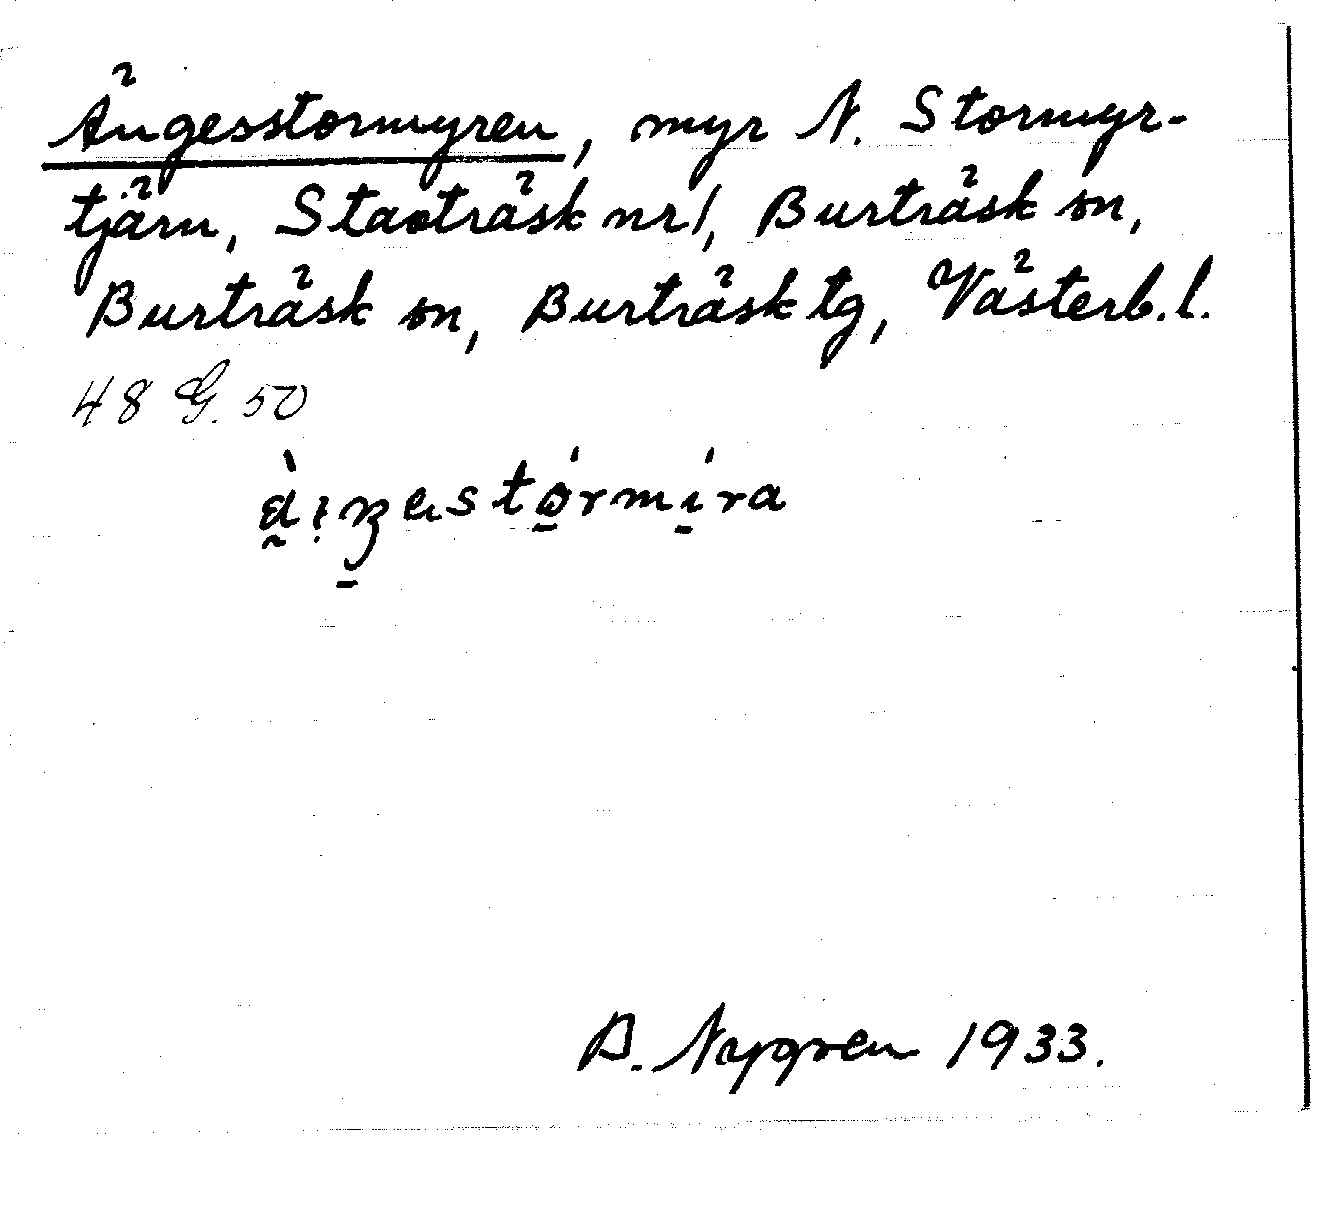 Ängesstormyren, myr N. Stormyr-
tjärn, Stavträsk nr 1, Burträsk sn,
Burträsk sn, Burträsk tg, Västerb. l.
48 G. 50
B. Nygren 1933.